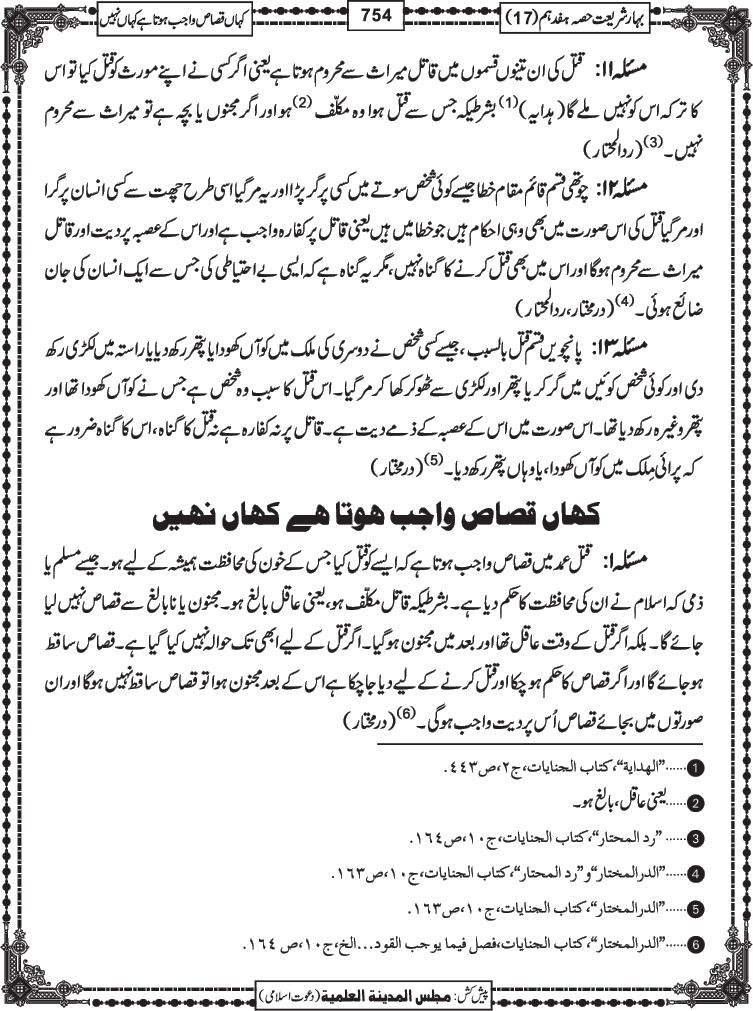 بہار شریعت حصہ ہفدہم (17)
754
کہاں قصاص واجب ہوتا ہے کہاں نہیں
مسئلہ ۱۱: قتل کی ان تینوں قسموں میں قاتل میراث سے محروم ہوتا ہے یعنی اگر کسی نے اپنے مورث کو قتل کیا تو اس
کا ترکہ اس کو نہیں ملے گا (ہدایہ)(1) بشرطیکہ جس سے قتل ہوا وہ مکلّف (2) ہو اور اگر مجنوں یا بچہ ہے تو میراث سے محروم
نہیں۔(3) (ردالمحتار)
مسئلہ ۱۲: چوتھی قسم قائم مقام خطا جیسے کوئی شخص سوتے میں کسی پر گر پڑا اور یہ مر گیا اسی طرح چھت سے کسی انسان پر گرا
اور مر گیا قتل کی اس صورت میں بھی وہی احکام ہیں جو خطا میں ہیں یعنی قاتل پر کفارہ واجب ہے اور اس کے عصبہ پر دیت اور قاتل
میراث سے محروم ہوگا اور اس میں بھی قتل کرنے کا گناہ نہیں، مگر یہ گناہ ہے کہ ایسی بے احتیاطی کی جس سے ایک انسان کی جان
ضائع ہوئی۔(4) (درمختار، ردالمحتار)
مسئلہ ۱۳: پانچویں قسم قتل بالسبب، جیسے کسی شخص نے دوسری کی ملک میں کوآں کھودا یا پتھر رکھ دیا یا راستہ میں لکڑی رکھ
دی اور کوئی شخص کوئیں میں گر کر یا پتھر اور لکڑی سے ٹھوکر کھا کر مر گیا۔ اس قتل کا سبب وہ شخص ہے جس نے کوآں کھودا تھا اور
پتھر وغیرہ رکھ دیا تھا۔ اس صورت میں اس کے عصبہ کے ذمے دیت ہے۔ قاتل پر نہ کفارہ ہے نہ قتل کا گناہ، اس کا گناہ ضرور ہے
کہ پرائی مِلک میں کوآں کھودا، یا وہاں پتھر رکھ دیا۔(5) (درمختار)
کہاں قصاص واجب ہوتا ہے کہاں نہیں
مسئلہ ۱: قتل عمد میں قصاص واجب ہوتا ہے کہ ایسے کو قتل کیا جس کے خون کی محافظت ہمیشہ کے لیے ہو۔ جیسے مسلم یا
ذمی کہ اسلام نے ان کی محافظت کا حکم دیا ہے۔ بشرطیکہ قاتل مکلّف ہو، یعنی عاقل بالغ ہو۔ مجنون یا نابالغ سے قصاص نہیں لیا
جائے گا۔ بلکہ اگر قتل کے وقت عاقل تھا اور بعد میں مجنون ہوگیا۔ اگر قتل کے لیے ابھی تک حوالہ نہیں کیا گیا ہے۔ قصاص ساقط
ہو جائے گا اور اگر قصاص کا حکم ہو چکا اور قتل کرنے کے لیے دیا جا چکا ہے اس کے بعد مجنون ہوا تو قصاص ساقط نہیں ہوگا اور ان
صورتوں میں بجائے قصاص اُس پر دیت واجب ہوگی۔(6) (درمختار)
1......"الهداية"، كتاب الجنايات، ج۲، ص٤٤٣.
2......یعنی عاقل، بالغ ہو۔
3......"رد المحتار"، كتاب الجنايات، ج۱۰، ص١٦٤.
4......"الدرالمختار" و"رد المحتار"، كتاب الجنايات، ج۱۰، ص١٦٣.
5......"الدرالمختار"، كتاب الجنايات، ج۱۰، ص١٦٣.
6......"الدرالمختار"، كتاب الجنايات، فصل فيما يوجب القود...الخ، ج۱۰، ص ١٦٤.
پیش کش: مجلس المدینۃ العلمیۃ (دعوت اسلامی)